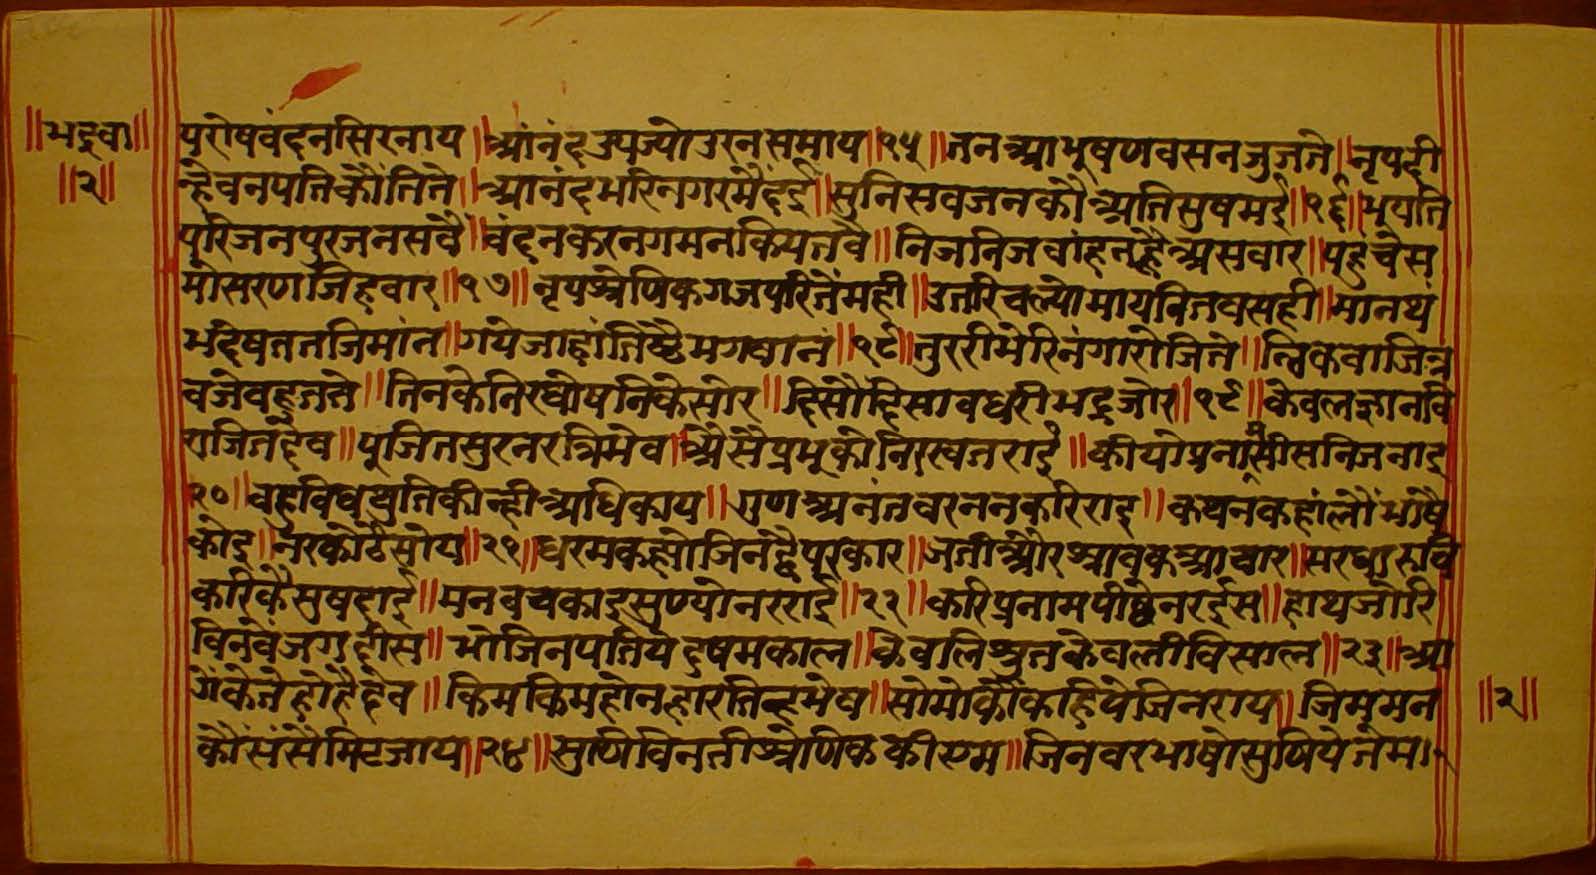 ॥भद्रवा॥
॥२॥
परोषवंदनसिरनाय॥आंनंदउपज्योउरनसमाय॥१५॥तनआभूषणवसनजुजते॥नृपदी
न्हैवनपतिकौंतिते॥आनंदभेरिनगरमैंदई॥सुनिसवजनकौंअतिसुषभई॥१६॥भूपति
परिजनपुरजनसवै॥वंदनकरनगमनकियतवै॥निजनिजवांहनह्वैअसवार॥पहुचेस
मोसरणजिहवार॥१७॥नृपश्रेणिकगजपरितेंमही॥उतरिचल्योमायविनवसही॥मानथं
भदेषततजिमांन॥गयेजाहांतिष्टैभगवानं॥१८॥तुररीभेरिनंगारोजिते॥त्विकेवाजित्र
वजेवहुतते॥तिनकेनिरघोषनिकेसोर॥दिसौदिसावधरीभइजोर॥१९॥केवलज्ञानवि
राजितदेव॥पूजितसुरनरत्रिमेव॥अैसैप्रभूकोनिरखतराई॥कीयोप्रनामसीसनिजनाइ
२०॥वहुविधथुतिकीन्हीअधिकाय॥गुणअनंतवरननकरिराइ॥कथनकहांलौंभाषै
कोइ॥नरकोठैसोय॥२१॥धरमकह्योजिनद्वैपरकार॥जतीऔरश्रावकआचार॥सरधारुचि
करिकैसुषदाई॥मनवचकाइसुण्योनरराई॥२२॥करिप्रनामपीछेनरईस॥हाथजोरि
विनवेजगदीस॥भोजिनपतियेदुषमकाल॥केवलिश्रुतकेवलीविसाल॥२३॥आ
गेंकेतेहोहैदेव॥किमकिमहोनहारतिन्हभेव॥सोमोकौंकहियेजिनराय॥जिममन
॥२॥
कौसंसैमिटजाय॥२४॥सुणिविनतीश्रेणिककीएम॥जिनवरभाषोसुणियेतेम।